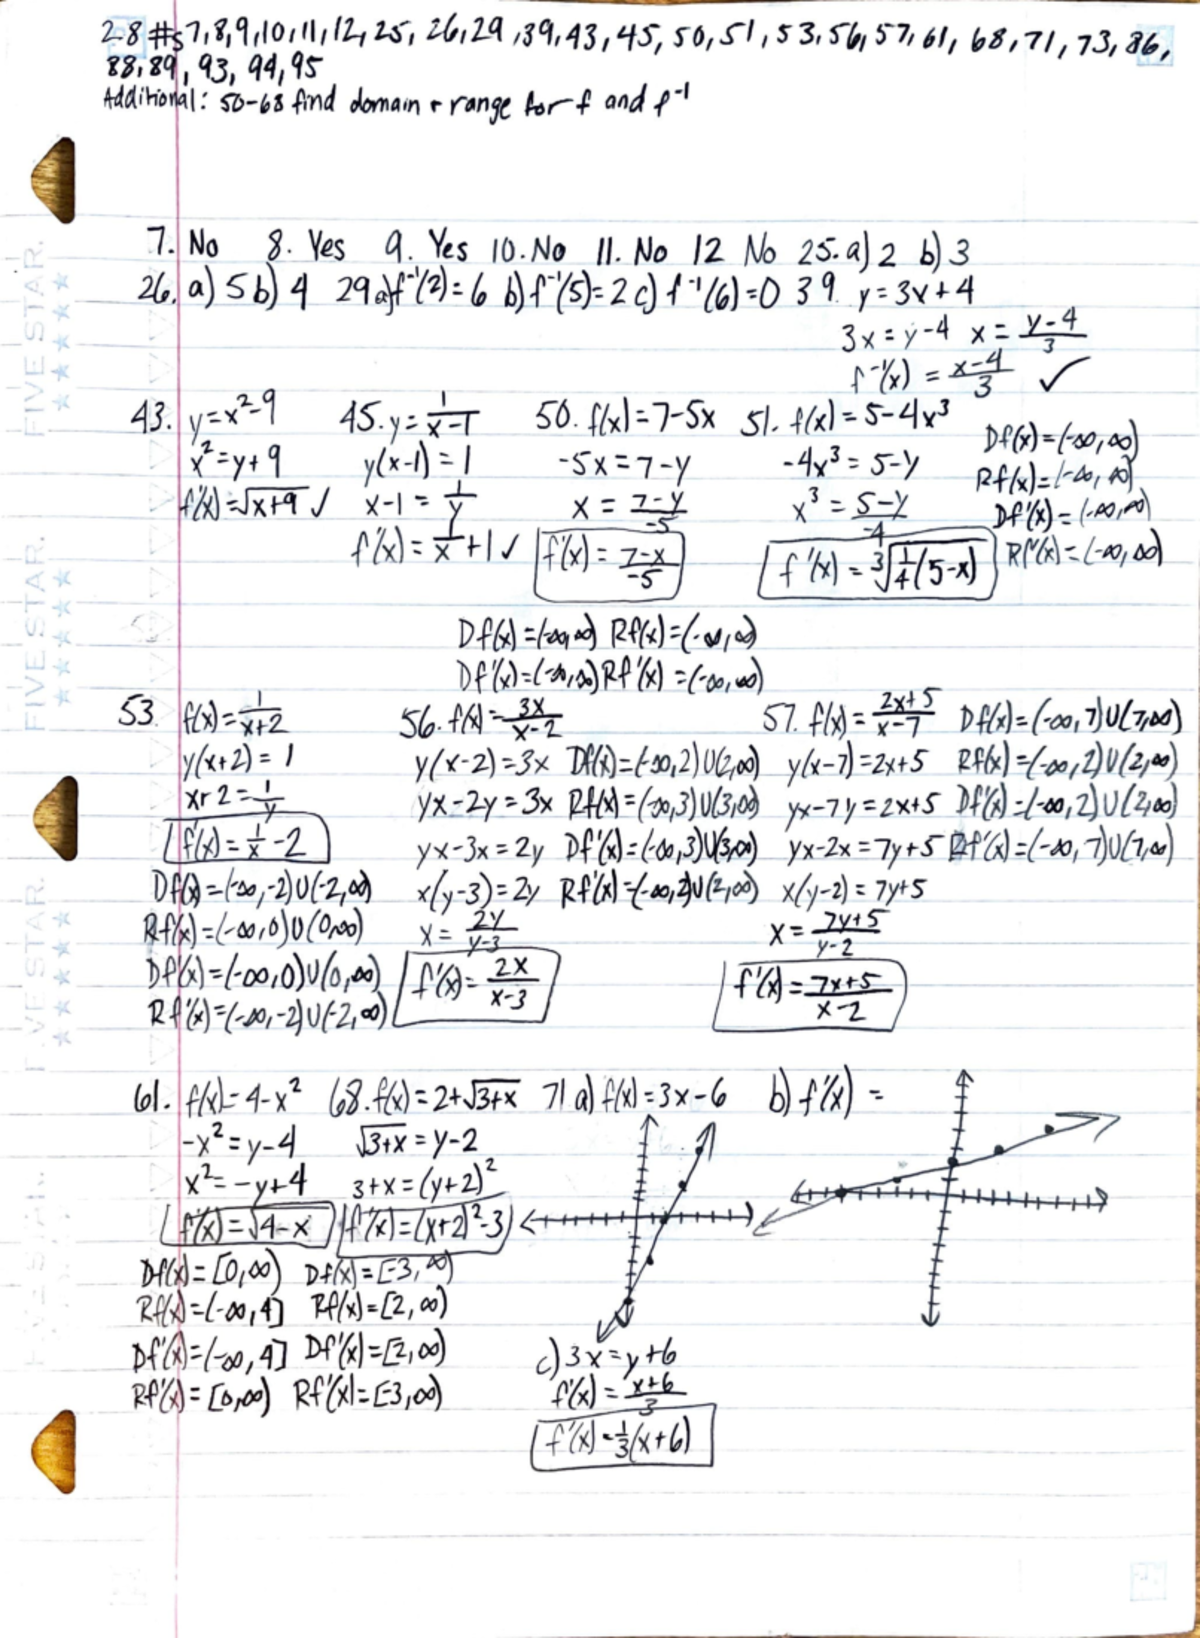 2.8 #s 7,8,9,10,11,12,25,26,29,39,43,45,50,51,53,56,57,61,68,71,73,86,
88,89,93,94,95
Additional: 50-68 find domain + range for f and f⁻¹
7. No 8. Yes 9. Yes 10. No 11. No 12 No 25. a) 2 b) 3
26. a) 5 b) 4 29 a) f⁻¹(2)=6 b) f⁻¹(5)=2 c) f⁻¹(6)=0 39. y=3x+4
3x=y-4 x=(y-4)/3
f⁻¹(x) = (x-4)/3 ✓
43. y=x²-9
x²=y+9
f⁻¹(x)=√(x+9) ✓
45. y=1/(x-1)
y(x-1)=1
x-1=1/y
f⁻¹(x)=1/x+1 ✓
50. f(x)=7-5x
-5x=7-y
x=(7-y)/-5
f⁻¹(x)=(7-x)/-5
Df(x)=(-∞,∞) Rf(x)=(-∞,∞)
Df⁻¹(x)=(-∞,∞) Rf⁻¹(x)=(-∞,∞)
51. f(x)=5-4x³
-4x³=5-y
x³=(5-y)/-4
f⁻¹(x)=³√(1/4(5-x))
Df(x)=(-∞,∞)
Rf(x)=(-∞,∞)
Df⁻¹(x)=(-∞,∞)
Rf⁻¹(x)=(-∞,∞)
53. f(x)=1/(x+2)
y(x+2)=1
x+2=1/y
f⁻¹(x)=1/x-2
Df(x)=(-∞,-2)U(-2,∞)
Rf(x)=(-∞,0)U(0,∞)
Df⁻¹(x)=(-∞,0)U(0,∞)
Rf⁻¹(x)=(-∞,-2)U(-2,∞)
56. f(x)=3x/(x-2)
y(x-2)=3x Df(x)=(-∞,2)U(2,∞)
yx-2y=3x Rf(x)=(-∞,3)U(3,∞)
yx-3x=2y Df⁻¹(x)=(-∞,3)U(3,∞)
x(y-3)=2y Rf⁻¹(x)=(-∞,2)U(2,∞)
x=2y/(y-3)
f⁻¹(x)=2x/(x-3)
57. f(x)=(2x+5)/(x-7) Df(x)=(-∞,7)U(7,∞)
y(x-7)=2x+5 Rf(x)=(-∞,2)U(2,∞)
yx-7y=2x+5 Df⁻¹(x)=(-∞,2)U(2,∞)
yx-2x=7y+5 Rf⁻¹(x)=(-∞,7)U(7,∞)
x(y-2)=7y+5
x=(7y+5)/(y-2)
f⁻¹(x)=(7x+5)/(x-2)
61. f(x)=4-x²
-x²=y-4
x²=-y+4
f⁻¹(x)=√(4-x)
Df(x)=[0,∞)
Rf(x)=(-∞,4]
Df⁻¹(x)=(-∞,4]
Rf⁻¹(x)=[0,∞)
68. f(x)=2+√(3+x)
√(3+x)=y-2
3+x=(y+2)²
f⁻¹(x)=(x+2)²-3
Df(x)=[-3,∞)
Rf(x)=[2,∞)
Df⁻¹(x)=[2,∞)
Rf⁻¹(x)=[-3,∞)
71 a) f(x)=3x-6 b) f⁻¹(x) =
c) 3x=y+6
f⁻¹(x)=(x+6)/3
f⁻¹(x)=1/3(x+6)
FIVE STAR.
FIVE STAR.
FIVE STAR.